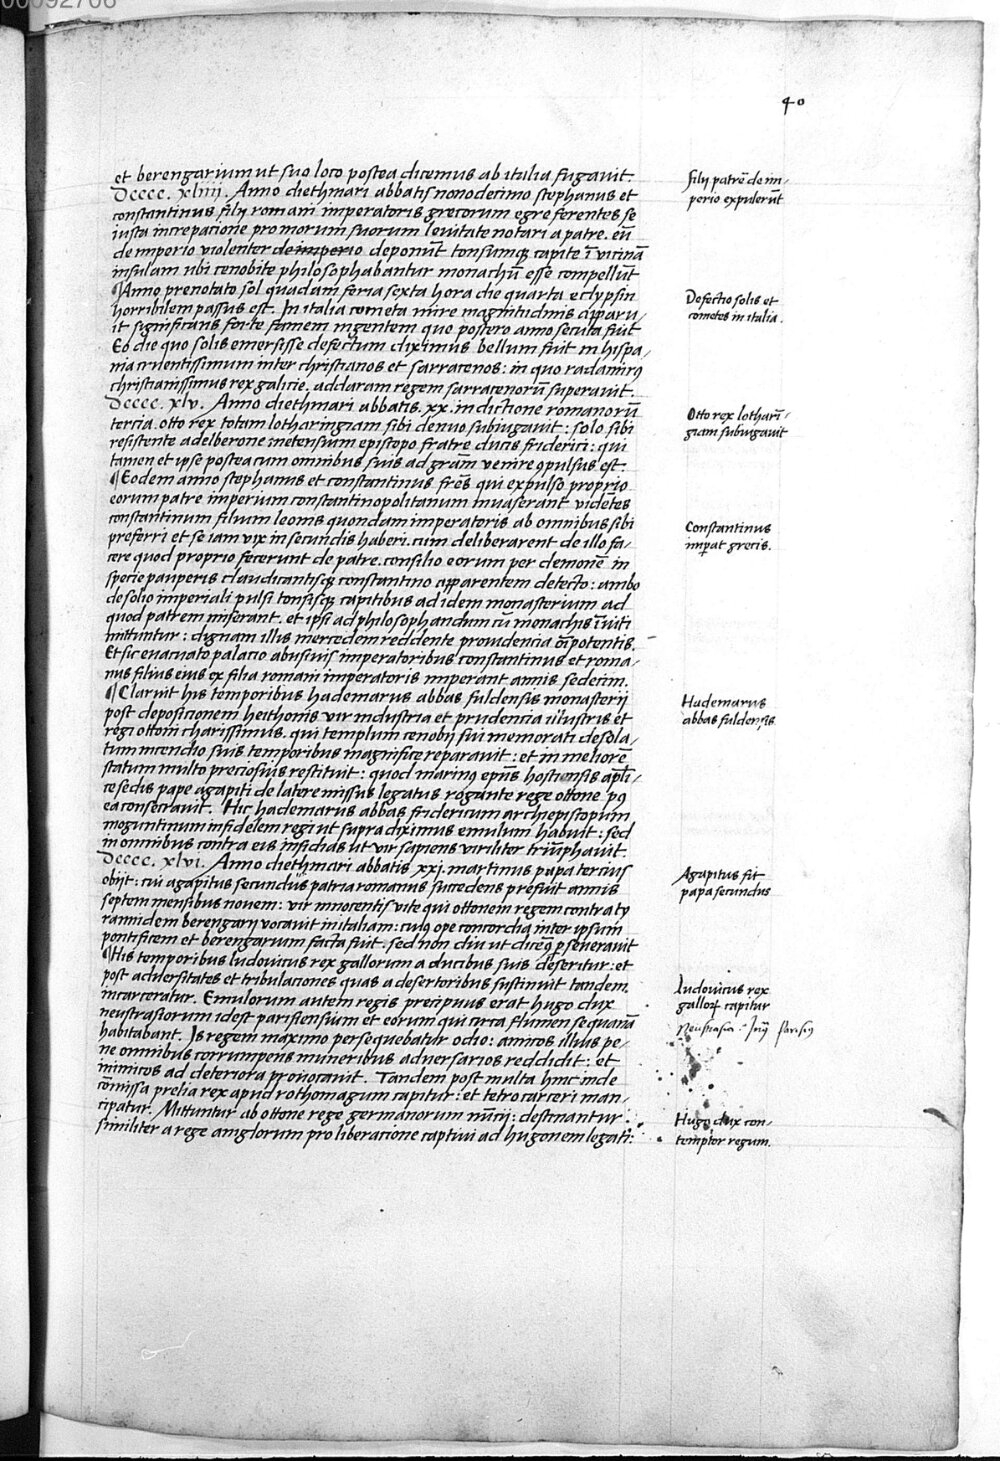 00092706
40
et berengarium ut suo loco postea dicemus ab italia fugavit.
Dcccc. xliiii. Anno diethmari abbatis nonodecimo stephanus et
constantinus filij romani imperatoris grecorum egre ferentes se
iusta increpacione pro morum suorum levitate notari a patre. eū
de imperio violenter de imperio deponūt tonsumq; capite ī vicinā
insulam ubi cenobite philosophabantur monachū esse compellūt
¶Anno prenotato sol quadam feria sexta hora die quarta eclypsin
horribilem passus est. In italia cometa mire magnitudinis apparu-
it significans forte famem ingentem que postero anno secuta fuit
Eo die quo solis emersisse defectum diximus bellum fuit in hispa-
nia cruentissimum inter christianos et sarracenos: in quo radamirꝰ
christianissimus rex galicie. addaram regem sarracenorū superavit.
Dcccc. xlv. Anno diethmari abbatis. xx. indictione romanorū
tercia. otto rex totam lotharingiam sibi denuo subiugavit: solo sibi
resistente adelberone metensium episcopo fratre ducis friderici: qui
tamen et ipse postea cum omnibus suis ad grām venire ꝯpulsus est.
¶Eodem anno stephanus et constantinus frēs qui expulso proprio
eorum patre imperium constantinopolitanum invaserant vidētes
constantinum filium leonis quondam imperatoris ab omnibus sibi
preferri et se iam vix in secundis haberi. cum deliberarent de illo fa-
cere quod proprio fecerunt de patre. consilio eorum per demonē in
specie pauperis claudicantisq; constantino apparentem detecto: ambo
de solio imperiali pulsi tonsisq; capitibus ad idem monasterium ad
quod patrem miserant. et ipsi ad philosophandum cū monachis īviti
mittuntur: dignam illis mercedem reddente providencia oīpotentis.
Et sic evacuato palacio abusivis imperatoribus constantinus et roma-
nus filius eius ex filia romani imperatoris imperant annis sedecim.
¶Claruit his temporibus hademarus abbas fuldensis monasterij
post deposicionem heithonis vir industria et prudencia illustris et
regi ottoni charissimus. qui templum cenobij sui memorati desola-
tum incendio suis temporibus magnifice reparavit: et in meliorē
statum multo preciosius restituit: quod marinꝰ ep̄us hostiensis apl̄i-
ce sedis pape agapiti de latere missus legatus rogante rege ottone. pꝰ
ea consecravit. Hic hademarus abbas fridericum archiepiscopum
moguntinum infidelem regi ut supra diximus emulum habuit: sed
in omnibus contra eius insidias ut vir sapiens viriliter triūphavit.
Dcccc. xlvi. Anno diethmari abbatis xxi. martinus papa tercius
obijt: cui agapitus secundus patria romanus succedens prefuit annis
septem mensibus novem: vir innocentis vite qui ottonem regem contra ty
rannidem berengarij vocavit in italiam: cuiꝰ ope concordia inter ipsum
pontificem et berengarium facta fuit. sed non diu ut dicēꝰ ꝑseveravit
¶His temporibus ludovicus rex gallorum a ducibus suis deseritur: et
post adversitates et tribulaciones quas a desertoribus sustinuit tandem
incarceratur. Emulorum autem regis precipuus erat hugo dux
neustrasiorum idest parisiensium et eorum qui circa flumen sequanā
habitabant. Is regem maximo persequebatur odio: amicos illius pe-
ne omnibus corrumpens muneribus adversarios reddidit: et
inimicos ad deteriora provocavit. Tandem post multa hinc inde
cōmissa prelia rex apud rothomagum capitur: et tetro carceri man-
cipatur. Mittuntur ab ottone rege germanorum nūcij: destinantur
similiter a rege anglorum pro liberacione captivi ad hugonem legati:
filij patrē de im-
perio expulerūt
Defectio solis et
cometes in italia.
Otto rex lotharī-
giam subiugavit
Constantinus
imꝑat grecis.
Hademarus
abbas fuldensis
Agapitus fit
papa secundus
Ludovicus rex
galloꝝ capitur
Neustrasia
Hugo dux con-
temptor regum.